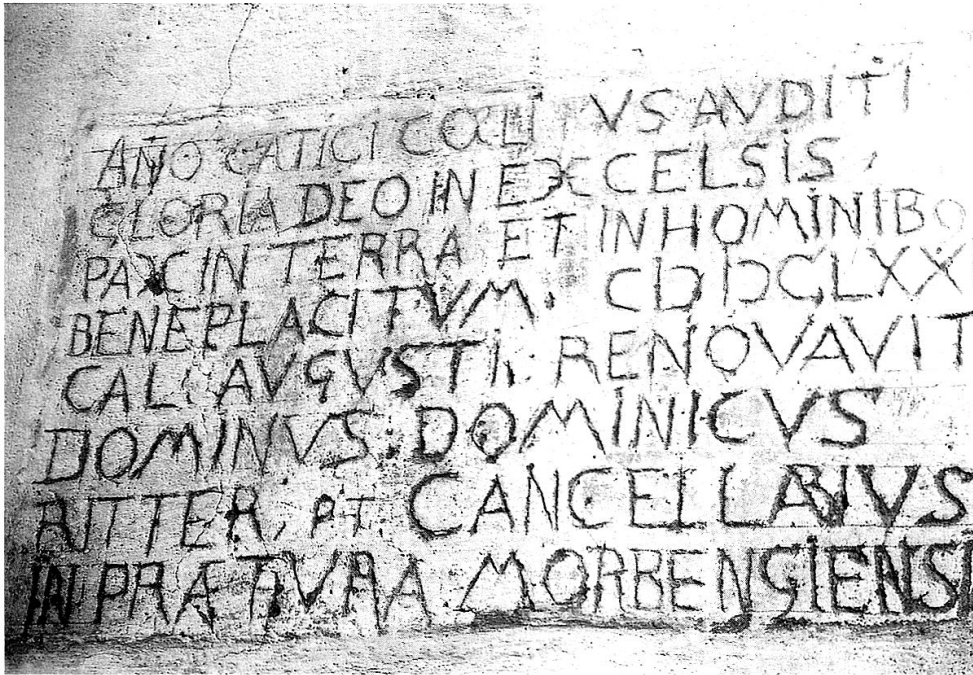 AÑO CATICI COELI VS AVDITI
GLORIA DEO IN EXCCELSIS
PAX IN TERRA ET IN HOMINIBO
BENEPLACITVM. CIƆ IƆCLXX
CAL: AVGVSTI. RENOVAVIT
DOMINVS. DOMINICVS
RITTER, PT CANCELLARIVS
IN PRÆTVRA MORBENGIENSI